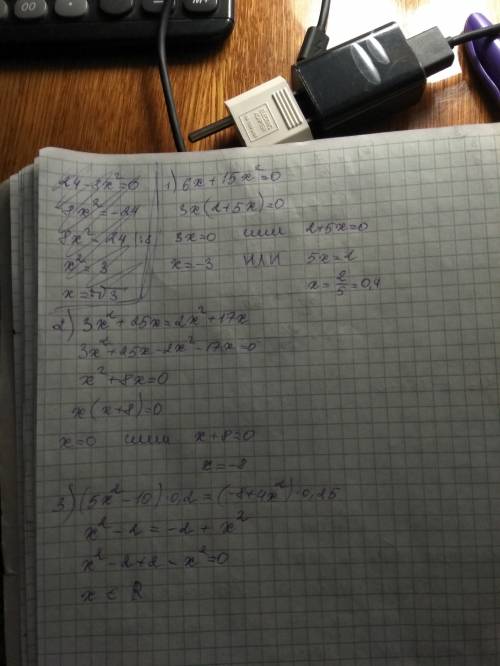 24-3x²=0
8x²=-24
8x²=24 |:8
x²=3
x=√3
1) 6x+15x²=0
3x(2+5x)=0
3x=0 или 2+5x=0
x=-3 или 5x=2
x=2/5=0,4
2) 3x²+25x=2x²+17x
3x²+25x-2x²-17x=0
x²+8x=0
x(x+8)=0
x=0 или x+8=0
x=-8
3) (5x²-10)·0,2=(-8+4x²)·0,25
x²-2=-2+x²
x²-2+2-x²=0
x∈R